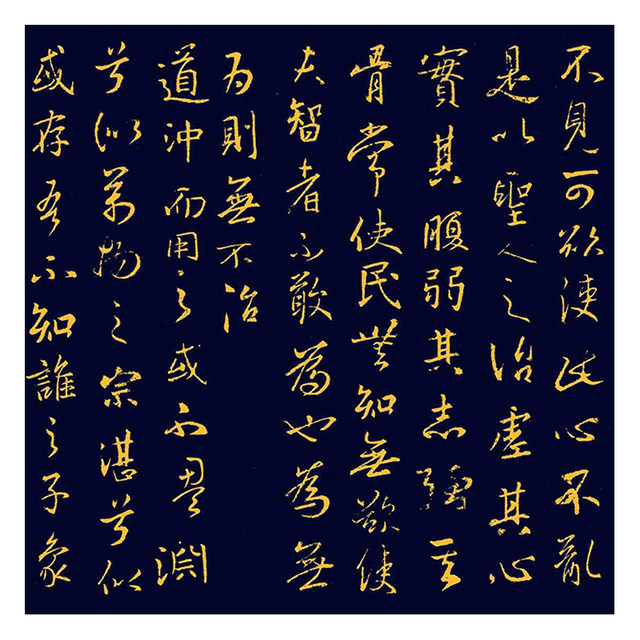 不見可欲使此心不亂
是以聖人之治虛其心
實其腹弱其志強其
骨常使民無知無欲使
夫智者不敢為也為無
為則無不治
道沖而用之或不盈淵
兮似萬物之宗湛兮似
或存吾不知誰之子象